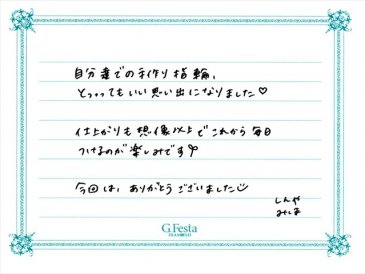 自分達での手作り指輪、
とっってもいい思い出になりました♡
仕上がりも想像以上でこれから毎日
つけるのが楽しみです
今回は、ありがとうございました
しんや
みしま
G.Festa
DIAMOND